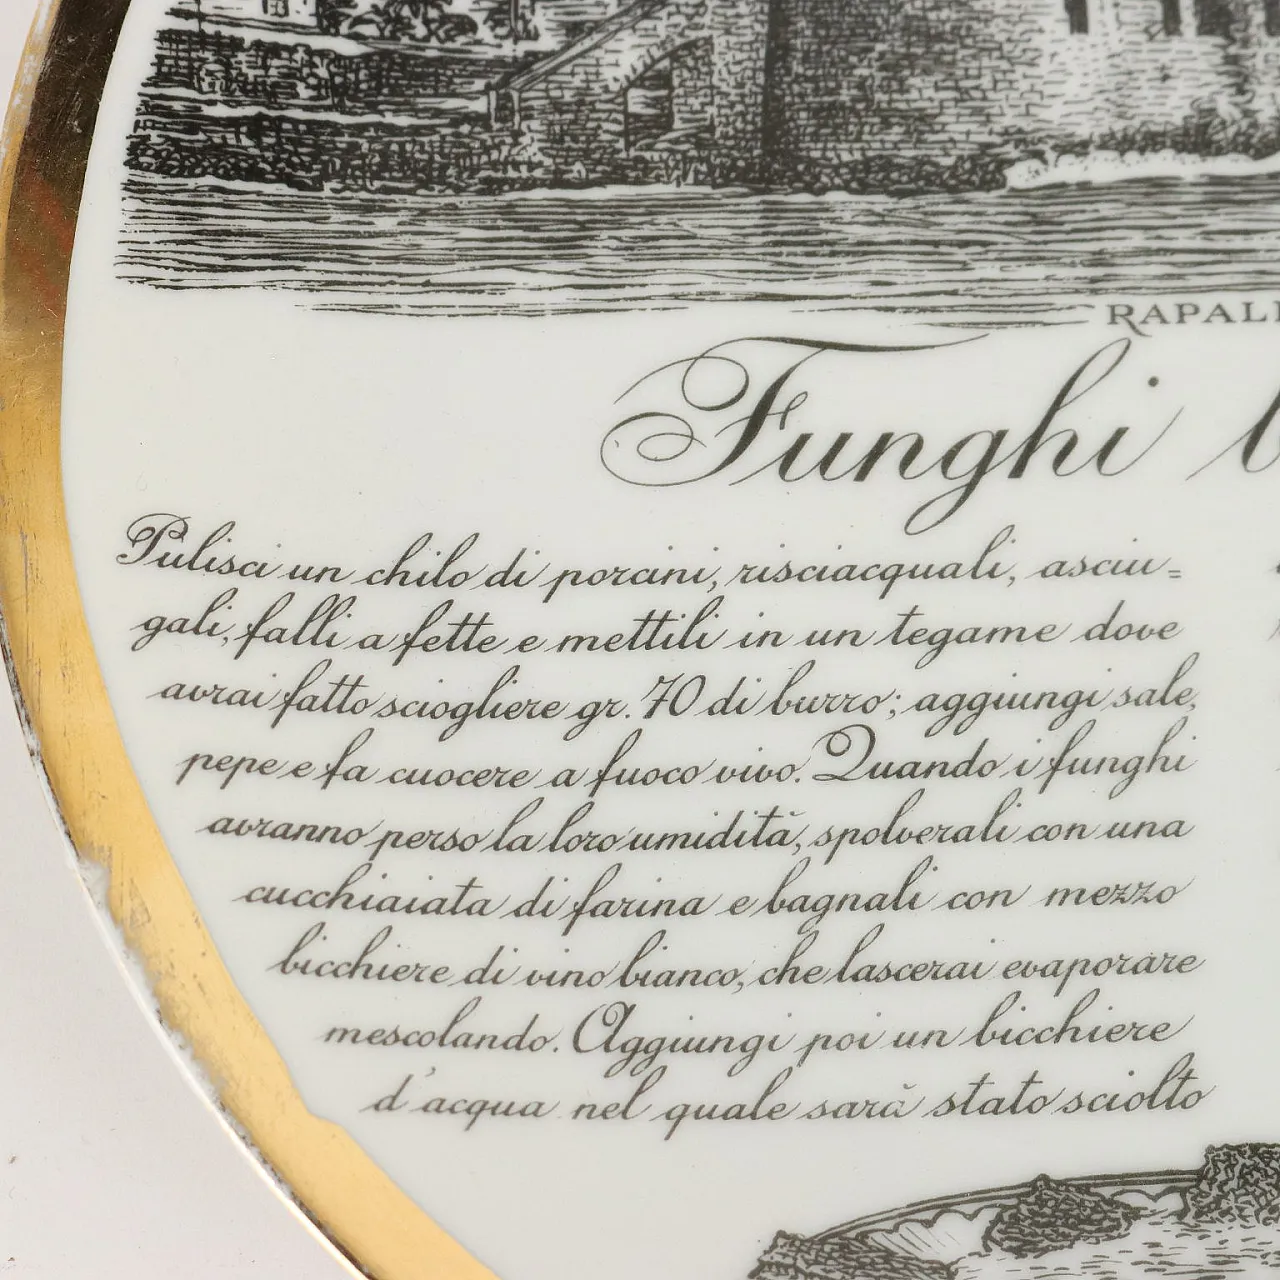 RAPALL
Funghi
Pulisci un chilo di porcini, risciacquali, asciu=
gali, falli a fette e mettili in un tegame dove
avrai fatto sciogliere gr. 70 di burro; aggiungi sale,
pepe e fa cuocere a fuoco vivo. Quando i funghi
avranno perso la loro umidità, spolverali con una
cucchiaiata di farina e bagnali con mezzo
bicchiere di vino bianco, che lascerai evaporare
mescolando. Aggiungi poi un bicchiere
d'acqua nel quale sarà stato sciolto